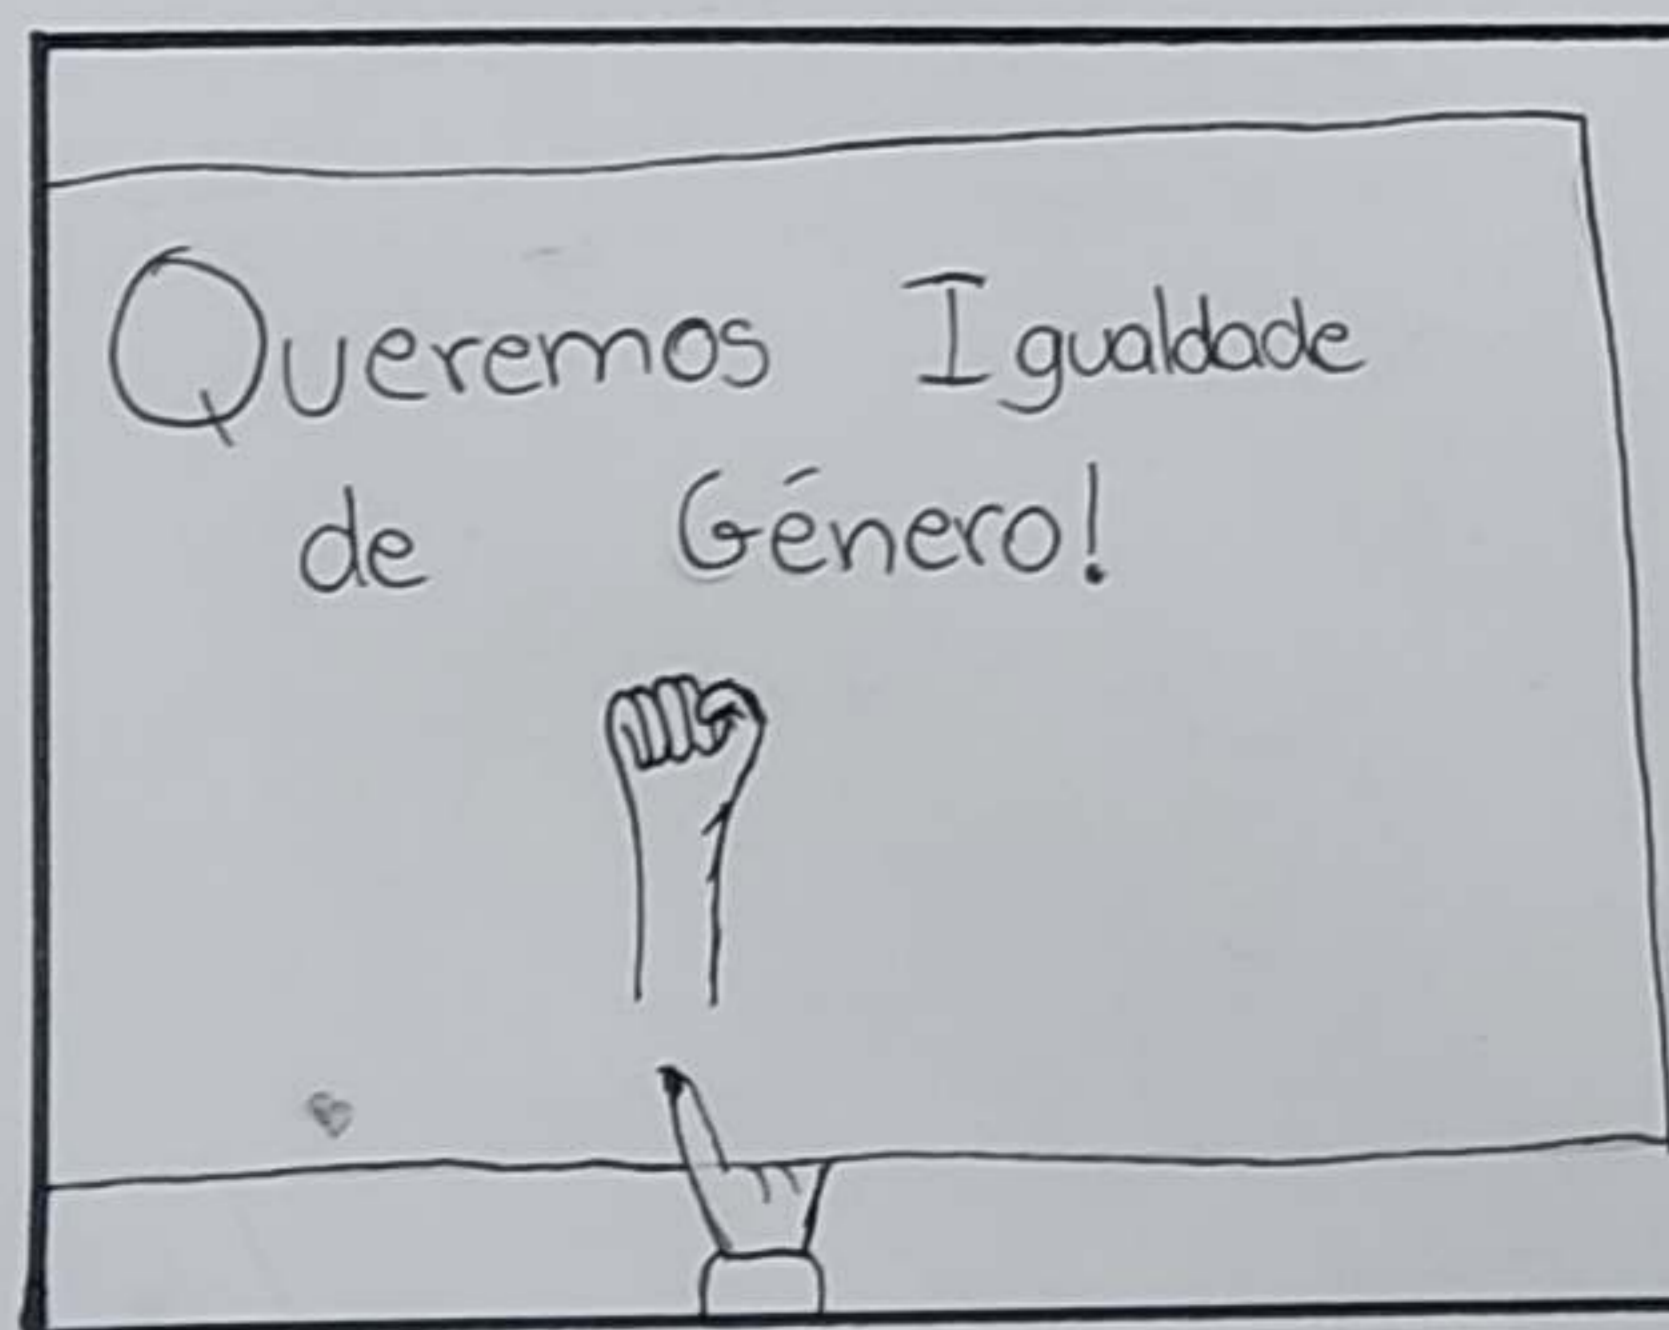 Queremos Igualdade
de Género!